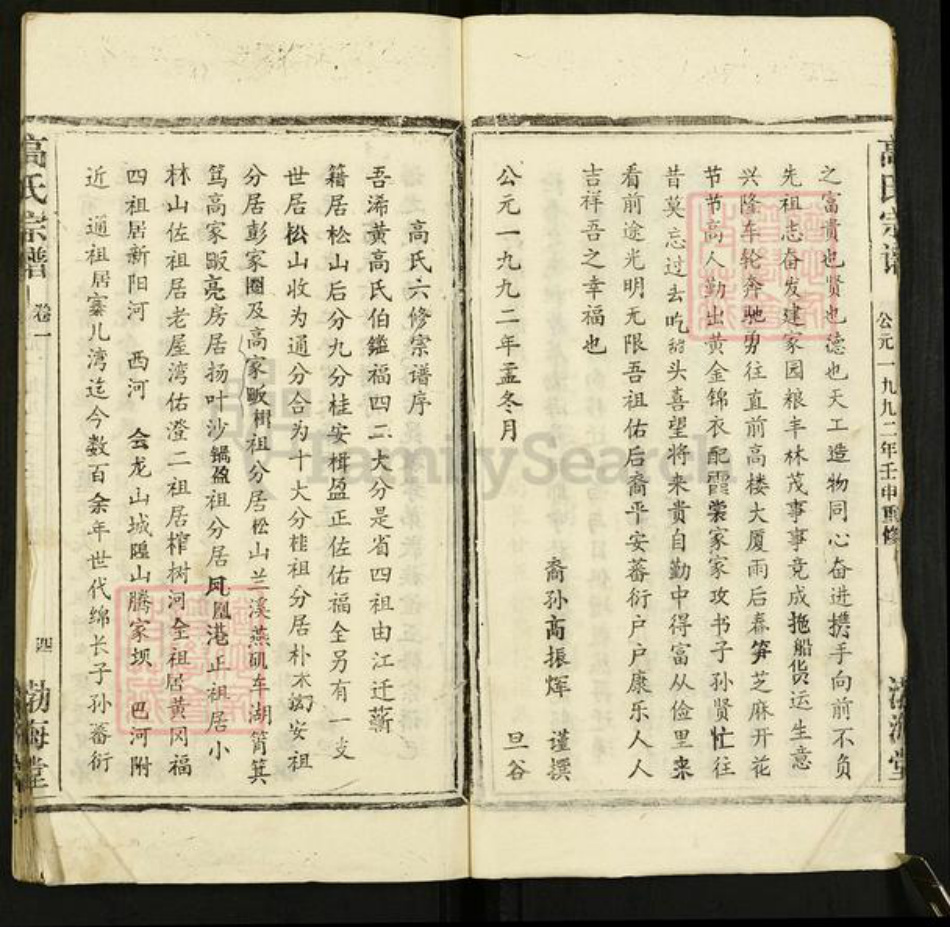 高氏宗谱
公元一九九二年壬申重修
渤海堂
之富贵也贤也德也天工造物同心奋进携手向前不负
先祖志奋发建家园粮丰林茂事事竞成拖船货运生意
兴隆车轮奔驰勇往直前高楼大厦雨后春笋芝麻开花
节节高人勤出黄金锦衣配霞裳家家攻书子孙贤忙往
昔莫忘过去吃甜头喜望将来贵自勤中得富从俭里来
看前途光明无限吾祖佑后裔平安蕃衍户户康乐人人
吉祥吾之幸福也
裔孙高振辉 谨撰
公元一九九二年孟冬月 旦谷
高氏六修宗谱序
吾浠黄高氏伯鑑福四二大分是省四祖由江迁蕲
籍居松山后分九分桂安楫盈正佐佑福全另有一支
世居松山收为通分合为十大分桂祖分居朴木安祖
分居彭家圈及高家畈楫祖分居松山兰溪燕矶车湖箕
笃高家畈亮房居扬叶沙锅盈祖分居凤凰港正祖居小
林山佐祖居老屋湾佑澄二祖居榨树河全祖居黄冈福
四祖居新阳河 西河 会龙山城隍山腾家坝 巴河附
近 通祖居寨儿湾迄今数百余年世代绵长子孙蕃衍
高氏宗谱
卷一
四
渤海堂
FamilySearch